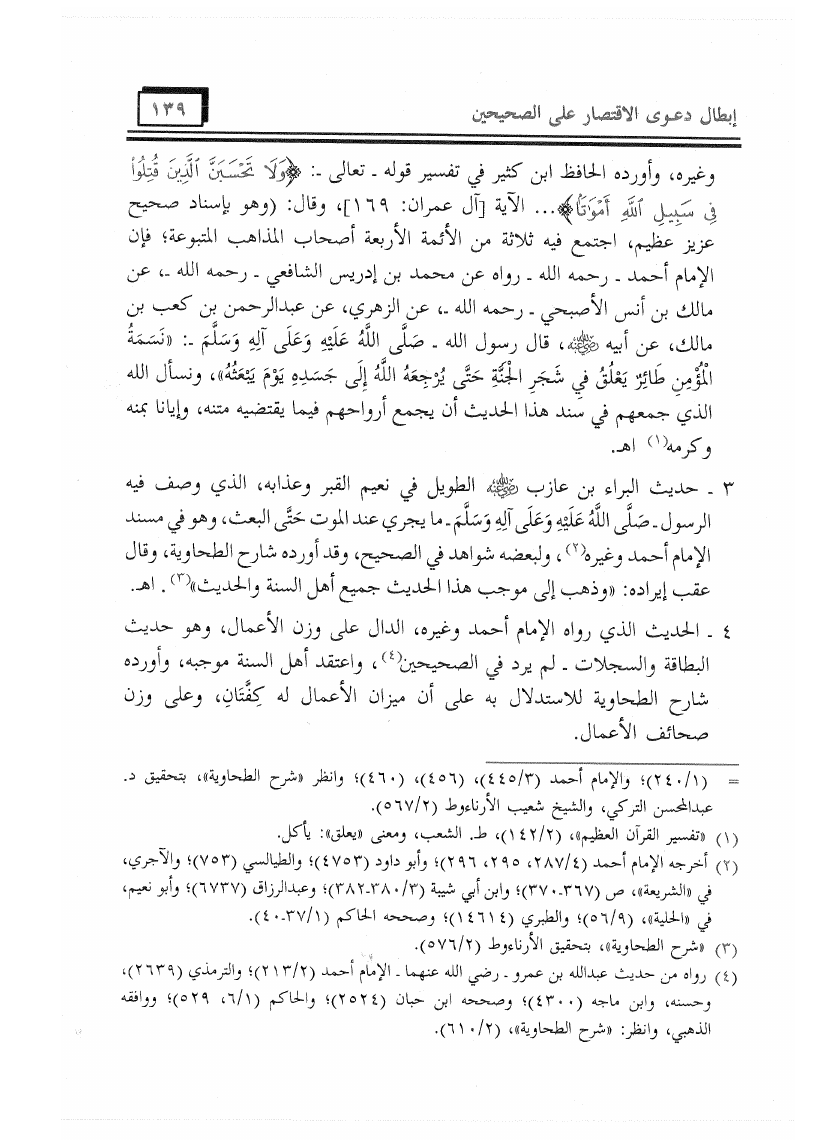 إبطال دعوى الاقتصار على الصحيحين
١٣٩
وغيره، وأورده الحافظ ابن كثير في تفسير قوله ـ تعالى ـ: ﴿وَلَا تَحْسَبَنَّ ٱلَّذِينَ قُتِلُوا۟
فِى سَبِيلِ ٱللَّهِ أَمْوَٰتًا﴾... الآية [آل عمران: ١٦٩]، وقال: (وهو بإسناد صحيح
عزيز عظيم، اجتمع فيه ثلاثة من الأئمة الأربعة أصحاب المذاهب المتبوعة؛ فإن
الإمام أحمد ـ رحمه الله ـ رواه عن محمد بن إدريس الشافعي ـ رحمه الله ـ، عن
مالك بن أنس الأصبحي ـ رحمه الله ـ، عن الزهري، عن عبدالرحمن بن كعب بن
مالك، عن أبيه ﵁، قال رسول الله ـ صَلَّى اللَّهُ عَلَيْهِ وَعَلَى آلِهِ وَسَلَّمَ ـ: «نَسَمَةُ
الْمُؤْمِنِ طَائِرٌ يَعْلُقُ فِي شَجَرِ الْجَنَّةِ حَتَّى يُرْجِعَهُ اللَّهُ إِلَى جَسَدِهِ يَوْمَ يَبْعَثُهُ»، ونسأل الله
الذي جمعهم في سند هذا الحديث أن يجمع أرواحهم فيما يقتضيه متنه، وإيانا بمنه
وكرمه(١) اهـ.
٣ ـ حديث البراء بن عازب ﵁ الطويل في نعيم القبر وعذابه، الذي وصف فيه
الرسول ـ صَلَّى اللَّهُ عَلَيْهِ وَعَلَى آلِهِ وَسَلَّمَ ـ ما يجري عند الموت حَتَّى البعث، وهو في مسند
الإمام أحمد وغيره(٢)، ولبعضه شواهد في الصحيح، وقد أورده شارح الطحاوية، وقال
عقب إيراده: «وذهب إلى موجب هذا الحديث جميع أهل السنة والحديث»(٣). اهـ.
٤ ـ الحديث الذي رواه الإمام أحمد وغيره، الدال على وزن الأعمال، وهو حديث
البطاقة والسجلات ـ لم يرد في الصحيحين(٤)، واعتقد أهل السنة موجبه، وأورده
شارح الطحاوية للاستدلال به على أن ميزان الأعمال له كِفَّتَانِ، وعلى وزن
صحائف الأعمال.
= (٢٤٠/١)؛ والإمام أحمد (٤٤٥/٣)، (٤٥٦)، (٤٦٠)؛ وانظر «شرح الطحاوية»، بتحقيق د.
عبدالمحسن التركي، والشيخ شعيب الأرناءوط (٥٦٧/٢).
(١) «تفسير القرآن العظيم»، (١٤٢/٢)، ط. الشعب، ومعنى «يعلق»: يأكل.
(٢) أخرجه الإمام أحمد (٢٨٧/٤، ٢٩٥، ٢٩٦)؛ وأبو داود (٤٧٥٣)؛ والطيالسي (٧٥٣)؛ والآجري،
في «الشريعة»، ص (٣٦٧ـ٣٧٠)؛ وابن أبي شيبة (٣٨٠/٣ـ٣٨٢)؛ وعبدالرزاق (٦٧٣٧)؛ وأبو نعيم،
في «الحلية»، (٥٦/٩)؛ والطبري (١٤٦١٤)؛ وصححه الحاكم (٣٧/١ـ٤٠).
(٣) «شرح الطحاوية»، بتحقيق الأرناءوط (٥٧٦/٢).
(٤) رواه من حديث عبدالله بن عمرو ـ رضي الله عنهما ـ الإمام أحمد (٢١٣/٢)؛ والترمذي (٢٦٣٩)،
وحسنه، وابن ماجه (٤٣٠٠)؛ وصححه ابن حبان (٢٥٢٤)؛ والحاكم (٦/١، ٥٢٩)؛ ووافقه
الذهبي، وانظر: «شرح الطحاوية»، (٦١٠/٢).